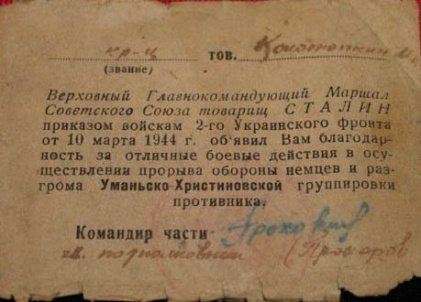 кр-ц тов.
(звание)
Верховный Главнокомандующий Маршал
Советского Союза товарищ СТАЛИН
приказом войскам 2-го Украинского фронта
от 10 марта 1944 г. об'явил Вам благодар-
ность за отличные боевые действия в осу-
ществлении прорыва обороны немцев и раз-
грома Уманьско-Христиновской группировки
противника.
Командир части
(Прохоров